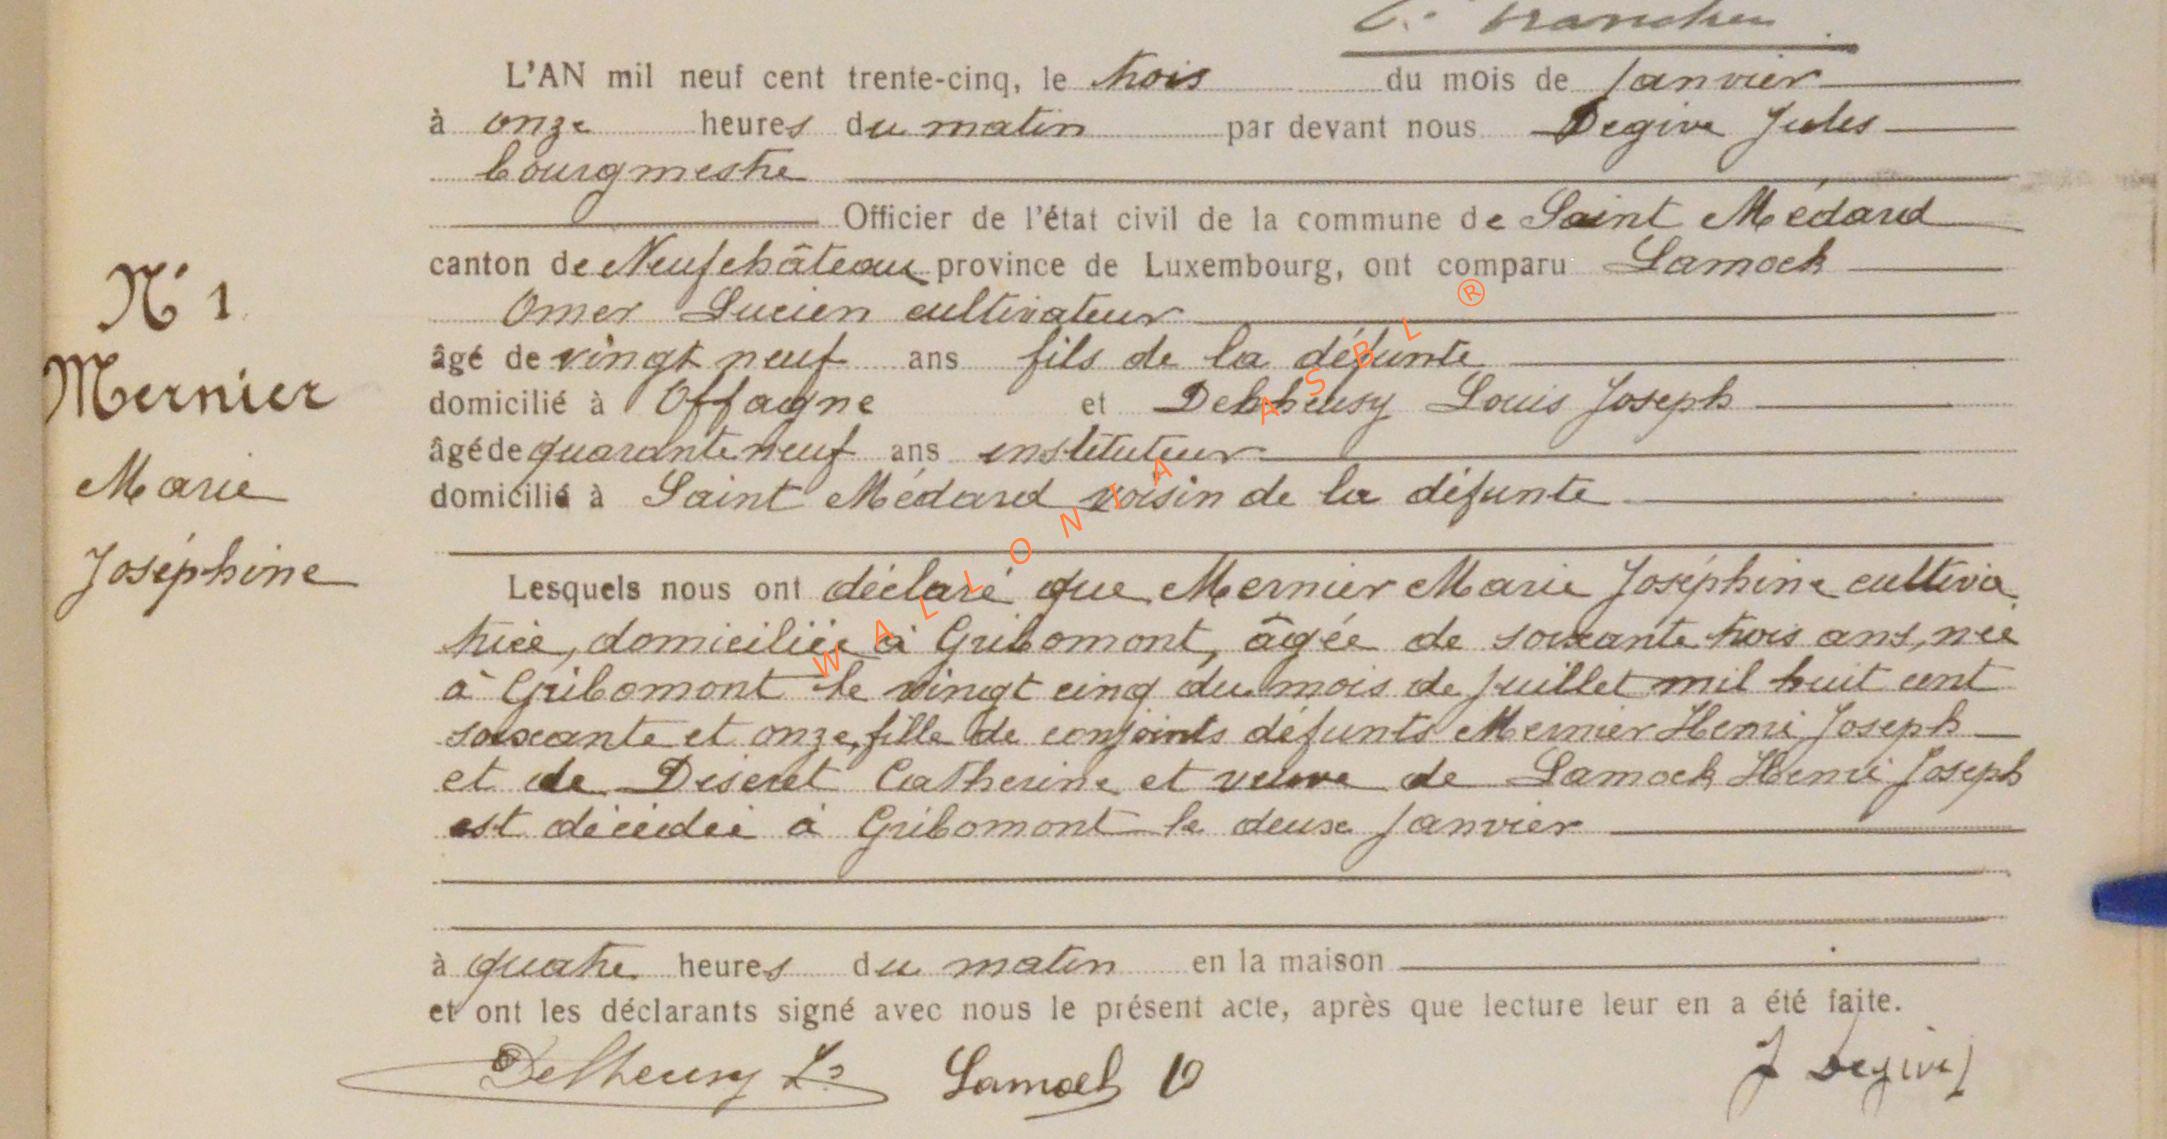 L'AN mil neuf cent trente-cinq, le trois du mois de Janvier
à onze heures du matin par devant nous Degive Jules
bourgmestre
Officier de l'état civil de la commune de Saint Médard
canton de Neufchâteau province de Luxembourg, ont comparu Lamock
Omer Lucien cultivateur
âgé de vingt neuf ans fils de la défunte
domicilié à Offagne et Delheusy Louis Joseph
âgé de quarante neuf ans instituteur
domicilié à Saint Médard voisin de la défunte
N° 1
Mernier
Marie
Joséphine
Lesquels nous ont déclaré que Mernier Marie Joséphine cultiva
trice, domiciliée à Gribomont, âgée de soixante trois ans, née
à Gribomont le vingt cinq du mois de Juillet mil huit cent
soixante et onze, fille de conjoints défunts Mernier Henri Joseph
et de Diseret Catherine et veuve de Lamock Henri Joseph
est décédée à Gribomont le deux Janvier
à quatre heures du matin en la maison
et ont les déclarants signé avec nous le présent acte, après que lecture leur en a été faite.
Delheusy Ls Lamock O J Degive
WALLONIA ASBL ®